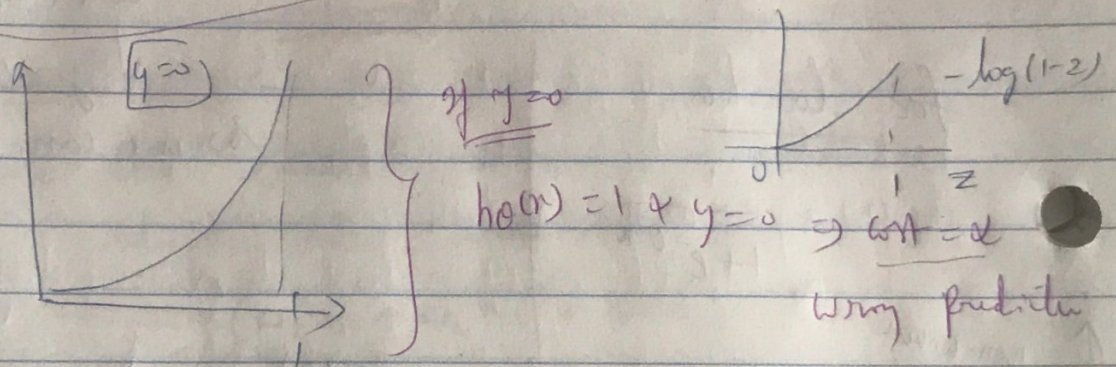 y=0
if y=0
-log(1-z)
0
1 z
hθ(x) = 1 & y=0 ⇒ cost = ∝
wrong prediction
1